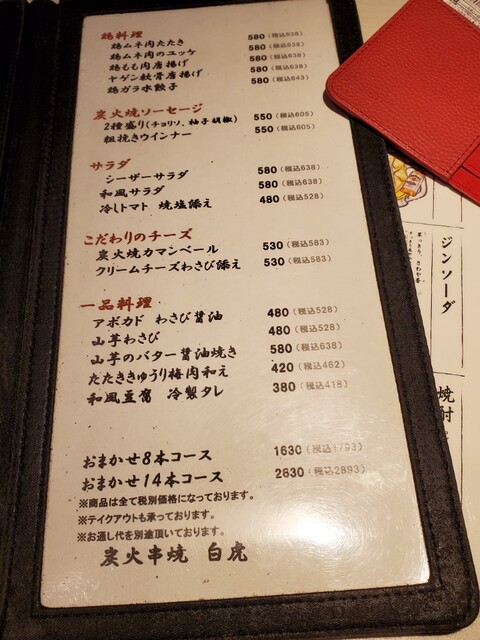 鶏料理
鶏ムネ肉たたき 580（税込638）
鶏ムネ肉のユッケ 580（税込638）
鶏もも肉唐揚げ 580（税込638）
ヤゲン軟骨唐揚げ 580（税込638）
鶏ガラ水餃子 580（税込643）
炭火焼ソーセージ
2種盛り(チョリソ、柚子胡椒) 550（税込605）
粗挽きウインナー 550（税込605）
サラダ
シーザーサラダ 580（税込638）
和風サラダ 580（税込638）
冷しトマト 焼塩添え 480（税込528）
こだわりのチーズ
炭火焼カマンベール 530（税込583）
クリームチーズわさび添え 530（税込583）
一品料理
アボカド わさび醤油 480（税込528）
山芋わさび 480（税込528）
山芋のバター醤油焼き 580（税込638）
たたききゅうり梅肉和え 420（税込462）
和風豆腐 冷製タレ 380（税込418）
おまかせ8本コース 1630（税込1793）
おまかせ14本コース 2630（税込2893）
※商品は全て税別価格になっております。
※テイクアウトも承っております。
※お通し代を別途頂いております。
炭火串焼 白虎
ジンソーダ
焼酎